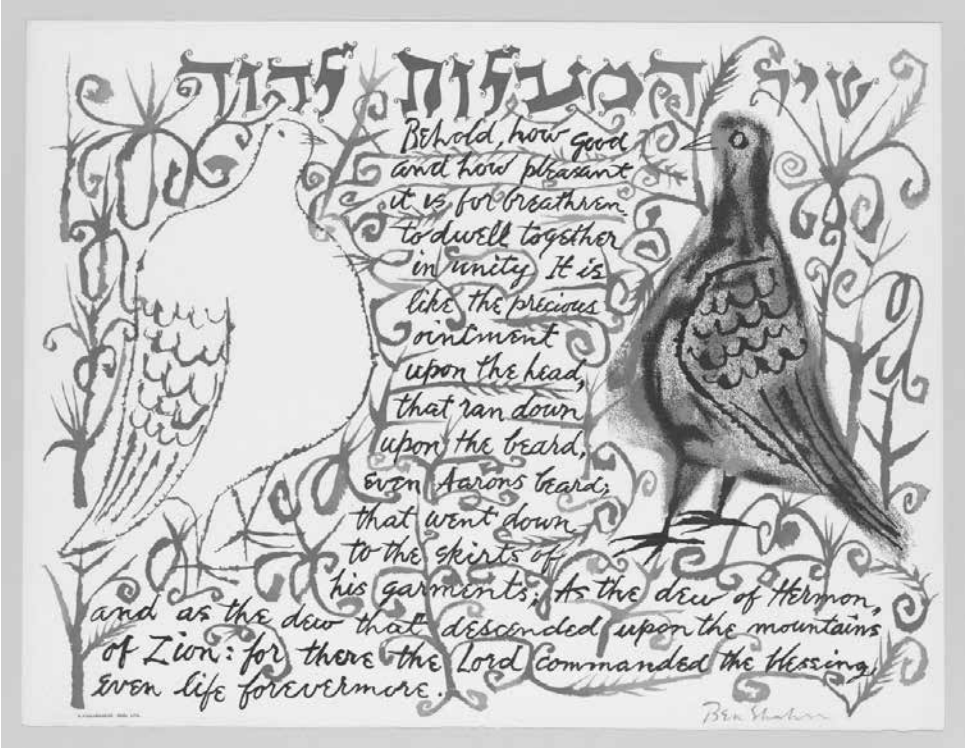 שיר המעלות לדוד
Behold, how good
and how pleasant
it is for breathren
to dwell together
in unity It is
like the precious
ointment
upon the head,
that ran down
upon the beard,
even Aarons beard;
that went down
to the skirts of
his garments; As the dew of Hermon,
and as the dew that descended upon the mountains
of Zion: for there the Lord commanded the blessing,
even life forevermore.
Ben Shahn